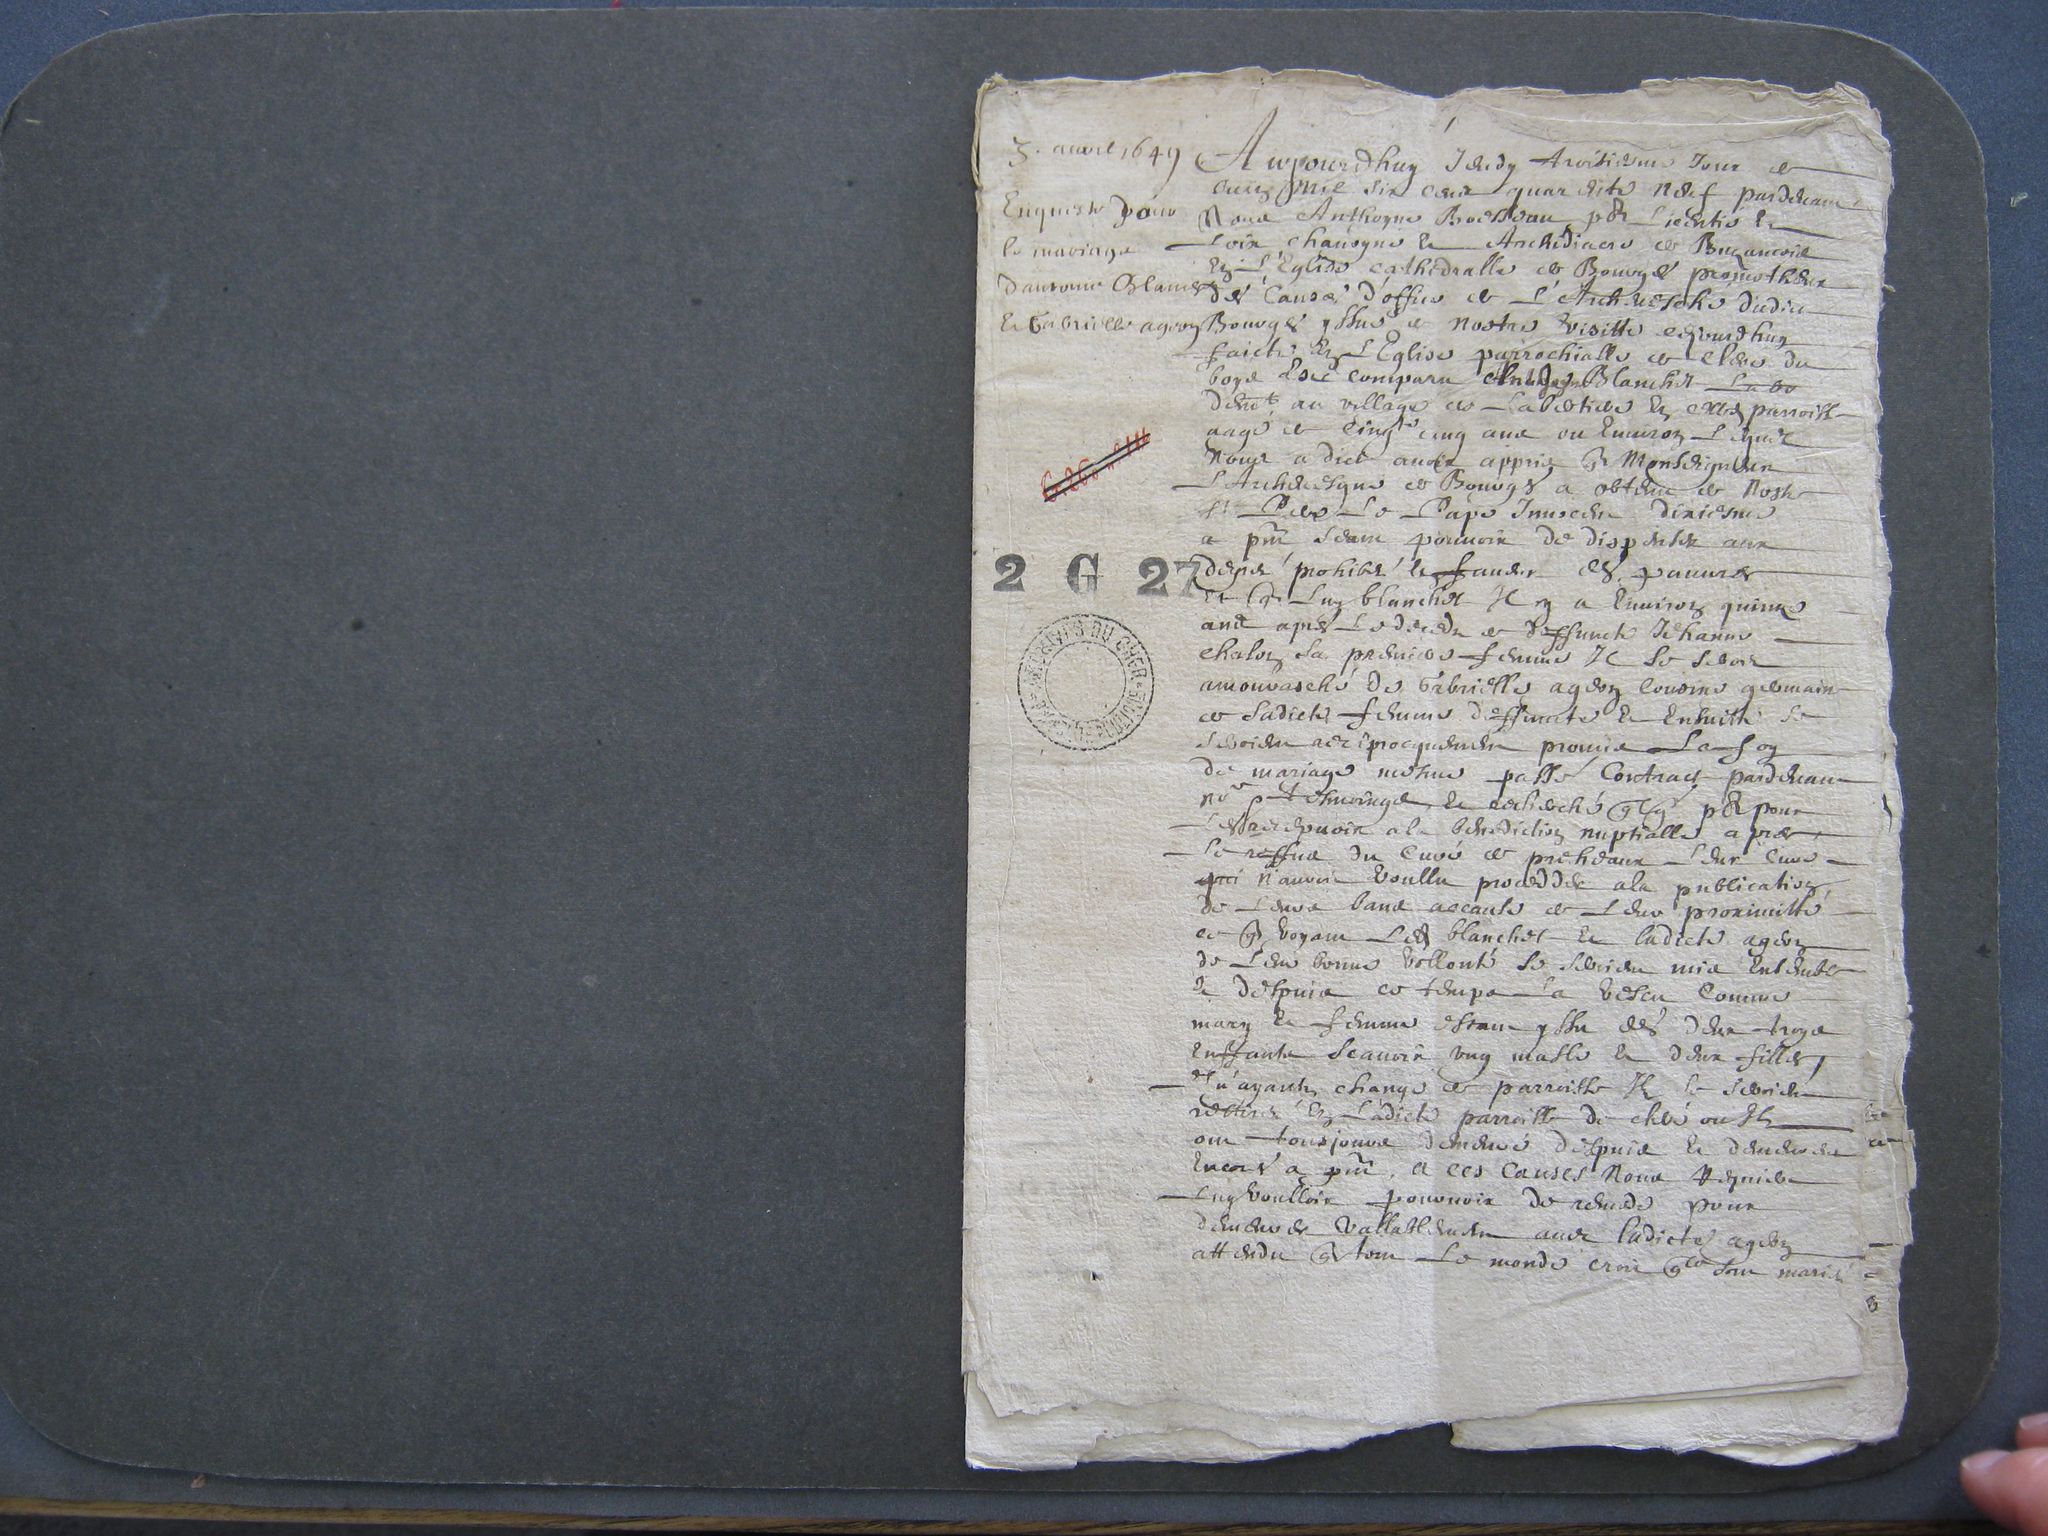 3. auvril 1649
Enqueste pour
le mariage
d'anthoine Blanchet
et Gabrielle ageon
2 G 27
ARCHIVES DU CHER
Aujourdhuy Jeudy troisiesme Jour de
mil six cens quarente neuf pardevant
Nous Anthoyne Boesseau pbr Licentié es
Loix chanoyne et Archidiacre de Buzancois
en L'Eglise cathedralle de Bourges promotheur
des causes d'office de L'Archevesché dudict
Bourges yssue de nostre visitte cejourdhuy
faicte en L'Eglise parrochialle de Cleré du
boys Est comparu Anthoyne Blanchet
demt au village de en ceste parroisse
aagé de cinqte cinq ans ou Environ Lequel
Nous a dict avoir appris que Monseigneur
L'Archevesque de Bourges a obtenu de Nostre
st Pere Le Pape Innocent dixiesme
a pnt seant pouvoir de dispenser aux
degrez prohibez en faveur des pauvres
Et que Luy blanchet Il y a Environ quinze
ans apres Le deceds de deffuncte Jehanne
chalon sa premiere femme Il se seroit
amouraché de Gabrielle ageon cousine germaine
de ladicte femme deffuncte et Ensuitte se
seroient reciprocquement promis La foy
de mariage mesme passé Contract pardevant
nore et tesmoings et cerché pbr pour
Les recepvoir a la benediction nuptialle apres
Le reffus du curé de preheaux Leur curé
qui n'avoit voullu procedder a la publication
de Leurs bans a cause de Leur proximitté
ce que voyant Led blanchet et ladicte ageon
de Leur bonne vollonté se seroient mis Ensemble
et despuis ce temps La vescu comme
mary et femme estant yssu des deux troys
Enffants scavoir ung masle et deux filles,
et ayants changé de parroisse Ilz se seroient
rettirez en Ladicte parroisse de cleré ou Ilz
ont tousjours demeuré despuis et demeurent
Encores a pnt, a ces causes Nous Requiert
Luy voulloir pourvoir de remede pour
demeurer vallablement avec ladicte ageon
attendu que tout Le monde croit quilz sont mariez